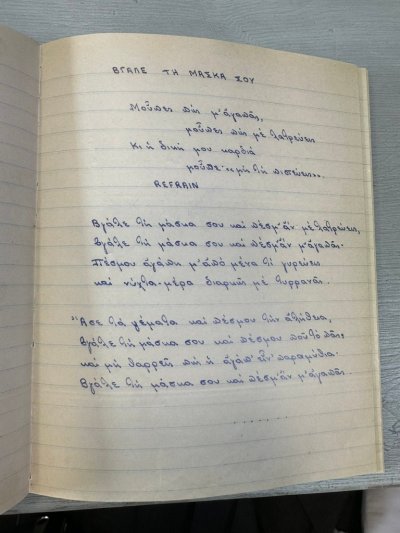 ΒΓΑΛΕ ΤΗ ΜΑΣΚΑ ΣΟΥ
Μοὖπες πὼς μ' ἀγαπᾶς,
μοὖπες πὼς μὲ λατρεύεις
Κι ἡ δική μου καρδιά
μοὖπε·«μὴ τὴ πιστεύεις».
REFRAIN
Βγάλε τὴ μάσκα σου καὶ πέσμ' ἂν μὲ λατρεύεις,
Βγάλε τὴ μάσκα σου καὶ πέσμ' ἂν μ' ἀγαπᾶς.
Πέσμου ἀγάπη μ' ἀπὸ μένα τὶ γυρεύεις
καὶ νύχτα-μέρα διαρκῆ μὲ τυρρανᾶς.
Ἄσε τὰ ψέματα καὶ πέσμου τὴν ἀλήθεια,
Βγάλε τὴ μάσκα σου καὶ πέσμου ποῦ τὸ πᾶς,
καὶ μὴ θαρρεῖς πὼς ἡ ἀγάπ' εἶν' παραμύθια.
Βγάλε τὴ μάσκα σου καὶ πέσμ' ἂν μ' ἀγαπᾶς.
.......